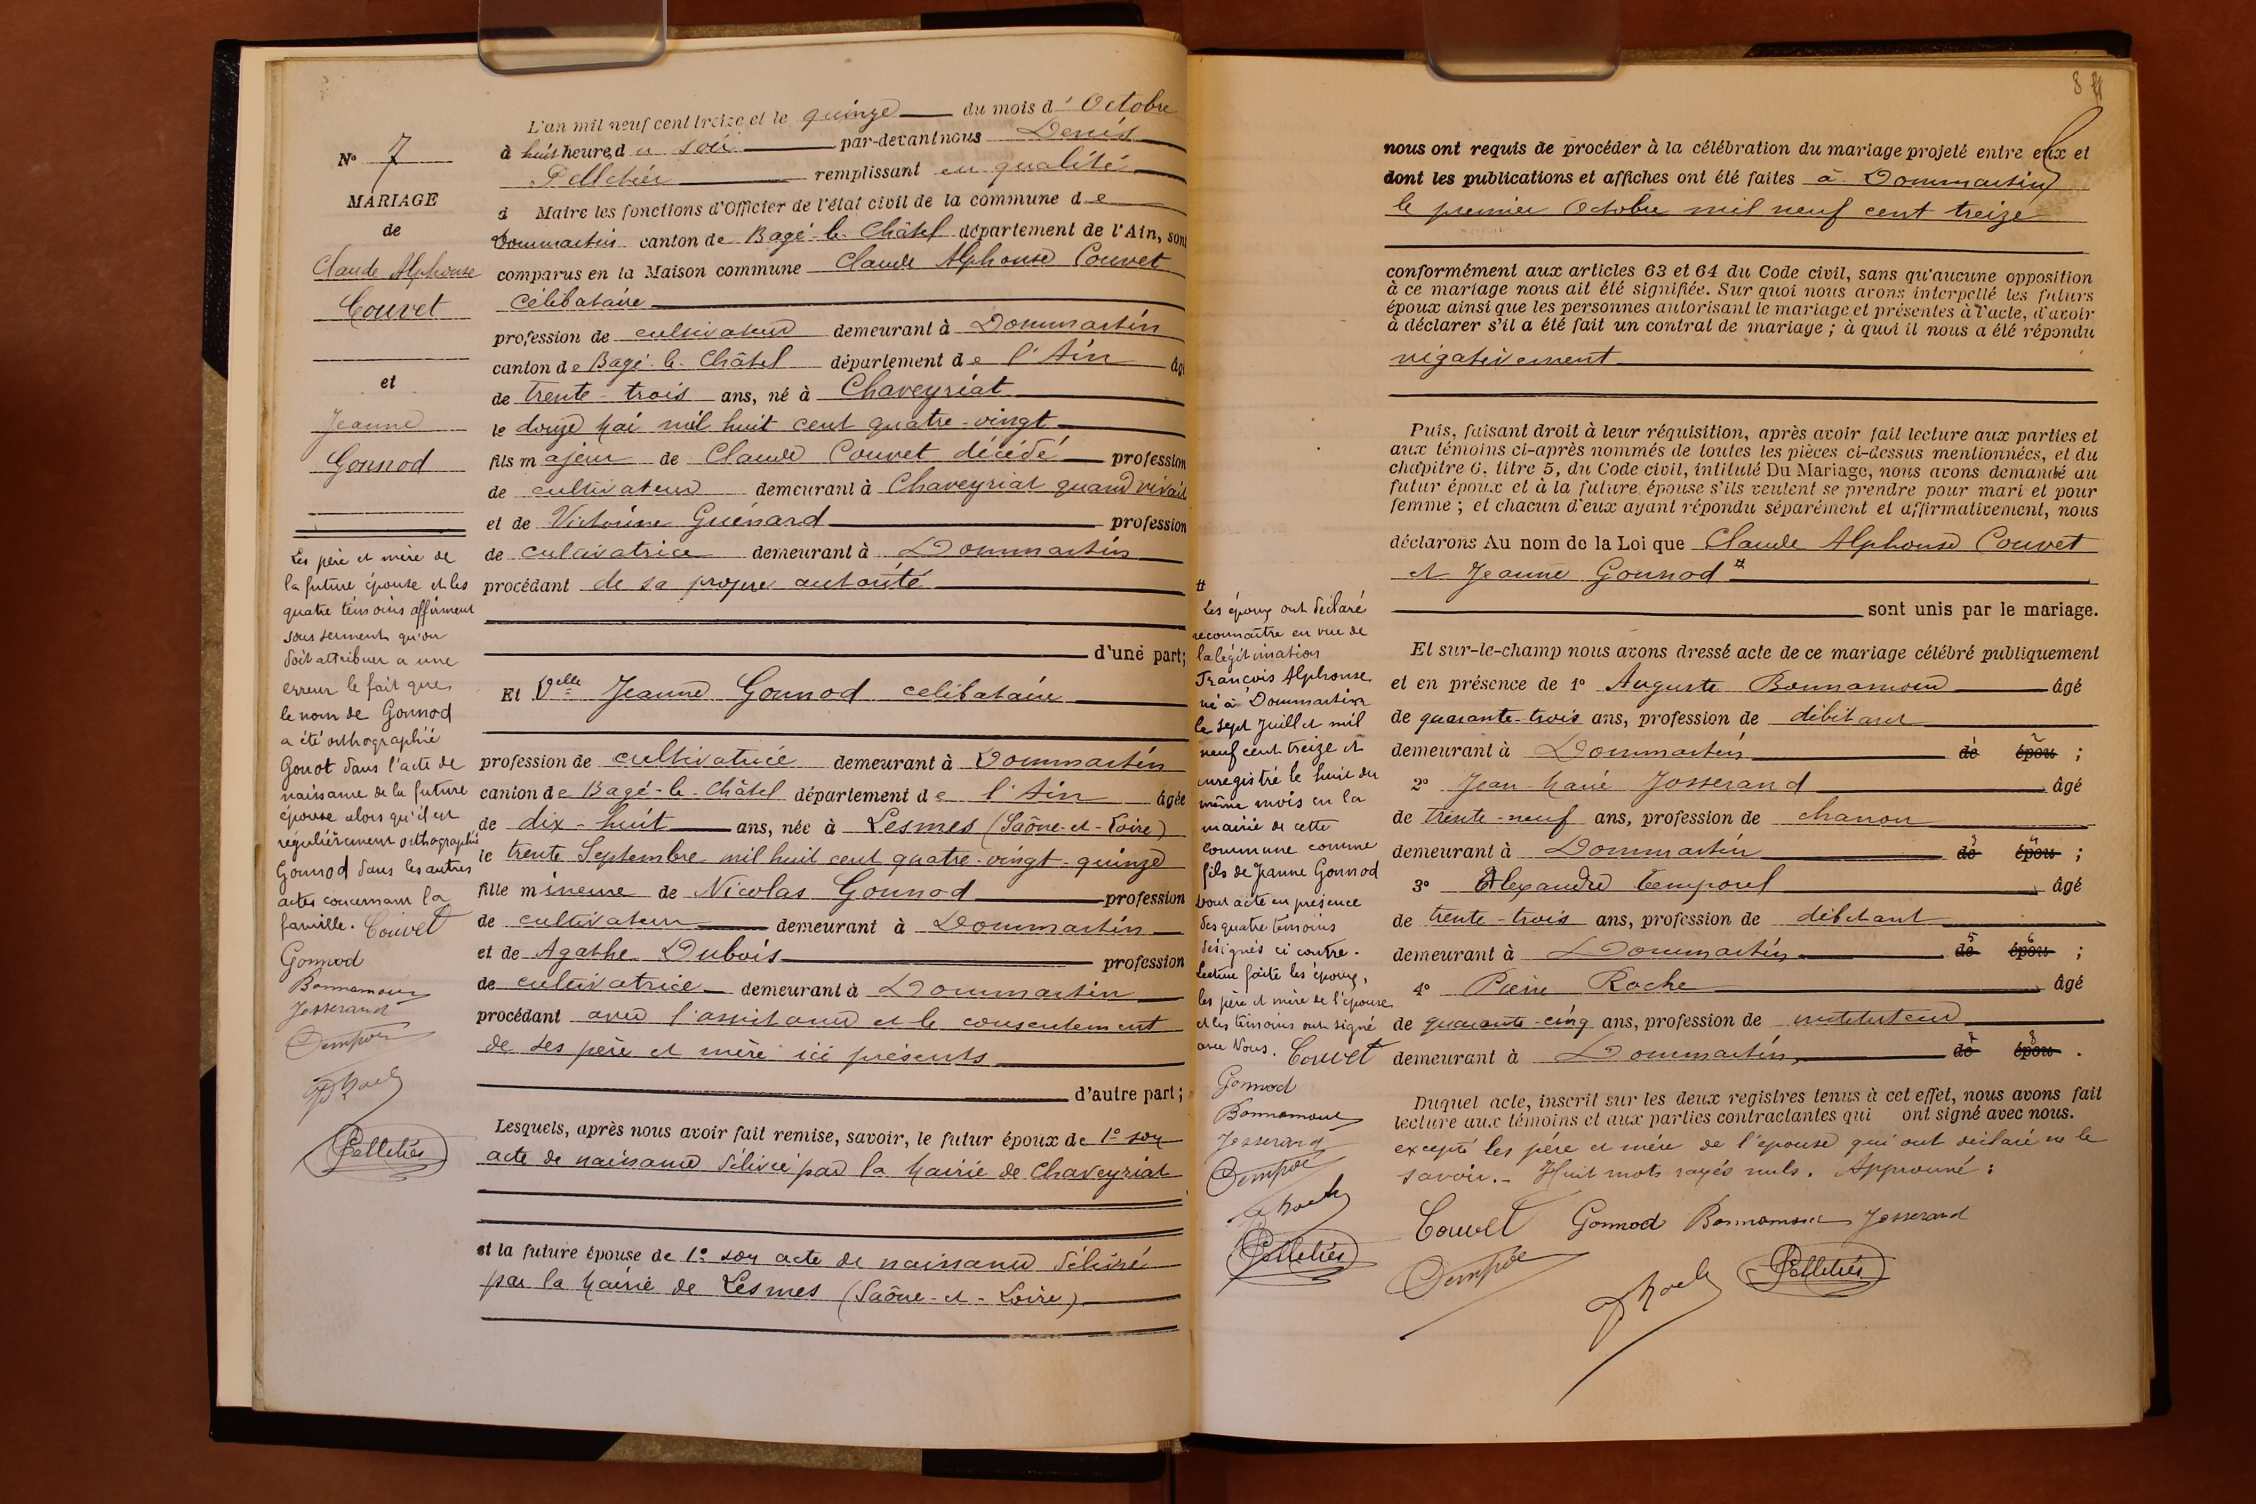 N° 7
MARIAGE
de
Claude Alphonse
Couvet
et
Jeanne
Gonnod
Les père et mère de
la future épouse et les
quatre témoins affirment
sous serment qu'on
doit attribuer a une
erreur le fait que
le nom de Gonnod
a été orthographié
Gonot dans l'acte de
naissance de la future
épouse alors qu'il est
régulièrement orthographié
Gonnod dans les autres
actes concernant la
famille. Couvet
Gonnod
Bonnamour
Josserand
Pelletier
L'an mil neuf cent treize et le quinze du mois d' Octobre
à huit heure du soir par-devant nous Denis
Pelletier remplissant en qualité
d Maire les fonctions d'Officier de l'état civil de la commune de
Dommartin canton de Bagé-le-Châtel département de l'Ain, sont
comparus en la Maison commune Claude Alphonse Couvet
célibataire
profession de cultivateur demeurant à Dommartin
canton de Bagé-le-Châtel département de l'Ain âgé
de trente-trois ans, né à Chaveyriat
le douze Mai mil huit cent quatre-vingt
fils majeur de Claude Couvet décédé profession
de cultivateur demeurant à Chaveyriat quand vivait
et de Victorine Guénard profession
de cultivatrice demeurant à Dommartin
procédant de sa propre autorité
d'une part;
Et Delle Jeanne Gonnod célibataire
profession de cultivatrice demeurant à Dommartin
canton de Bagé-le-Châtel département de l'Ain âgée
de dix-huit ans, née à Lesmes (Saône-et-Loire)
le trente Septembre mil huit cent quatre-vingt-quinze
fille mineure de Nicolas Gonnod profession
de cultivateur demeurant à Dommartin
et de Agathe Dubois profession
de cultivatrice demeurant à Dommartin
procédant avec l'assistance et le consentement
de ses père et mère ici présents
d'autre part;
Lesquels, après nous avoir fait remise, savoir, le futur époux de 1° son
acte de naissance délivré par la Mairie de Chaveyriat
et la future épouse de 1° son acte de naissance délivré
par la Mairie de Lesmes (Saône-et-Loire)
8
nous ont requis de procéder à la célébration du mariage projeté entre eux et
dont les publications et affiches ont été faites à Dommartin
le premier Octobre mil neuf cent treize
conformément aux articles 63 et 64 du Code civil, sans qu'aucune opposition
à ce mariage nous ait été signifiée. Sur quoi nous avons interpellé les futurs
époux ainsi que les personnes autorisant le mariage et présentes à l'acte, d'avoir
à déclarer s'il a été fait un contrat de mariage ; à quoi il nous a été répondu
négativement
Puis, faisant droit à leur réquisition, après avoir fait lecture aux parties et
aux témoins ci-après nommés de toutes les pièces ci-dessus mentionnées, et du
chapitre 6, titre 5, du Code civil, intitulé Du Mariage, nous avons demandé au
futur époux et à la future épouse s'ils veulent se prendre pour mari et pour
femme ; et chacun d'eux ayant répondu séparément et affirmativement, nous
déclarons Au nom de la Loi que Claude Alphonse Couvet
et Jeanne Gonnod #
sont unis par le mariage.
Et sur-le-champ nous avons dressé acte de ce mariage célébré publiquement
et en présence de 1° Auguste Bonnamour âgé
de quarante-trois ans, profession de débitant
demeurant à Dommartin de épou ;
2° Jean Marie Josserand âgé
de trente-neuf ans, profession de charron
demeurant à Dommartin de épou ;
3° Alexandre Temporel âgé
de trente-trois ans, profession de débitant
demeurant à Dommartin de épou ;
4° Pierre Roche âgé
de quarante-cinq ans, profession de instituteur
demeurant à Dommartin de épou .
Duquel acte, inscrit sur les deux registres tenus à cet effet, nous avons fait
lecture aux témoins et aux parties contractantes qui ont signé avec nous.
excepté les père et mère de l'épouse qui ont déclaré ne le
savoir. - Huit mots rayés nuls. Approuvé :
Couvet Gonnod Bonnamour Josserand
Pelletier
#
Les époux ont déclaré
reconnaître en vue de
la légitimation
François Alphonse
né à Dommartin
le sept Juillet mil
neuf cent treize et
enregistré le huit du
même mois en la
mairie de cette
commune comme
fils de Jeanne Gonnod
dont acte en présence
des quatre témoins
désignés ci contre.
Lecture faite les époux,
les père et mère de l'épouse
et les témoins ont signé
avec Nous. Couvet
Gonnod
Bonnamour
Josserand
Pelletier